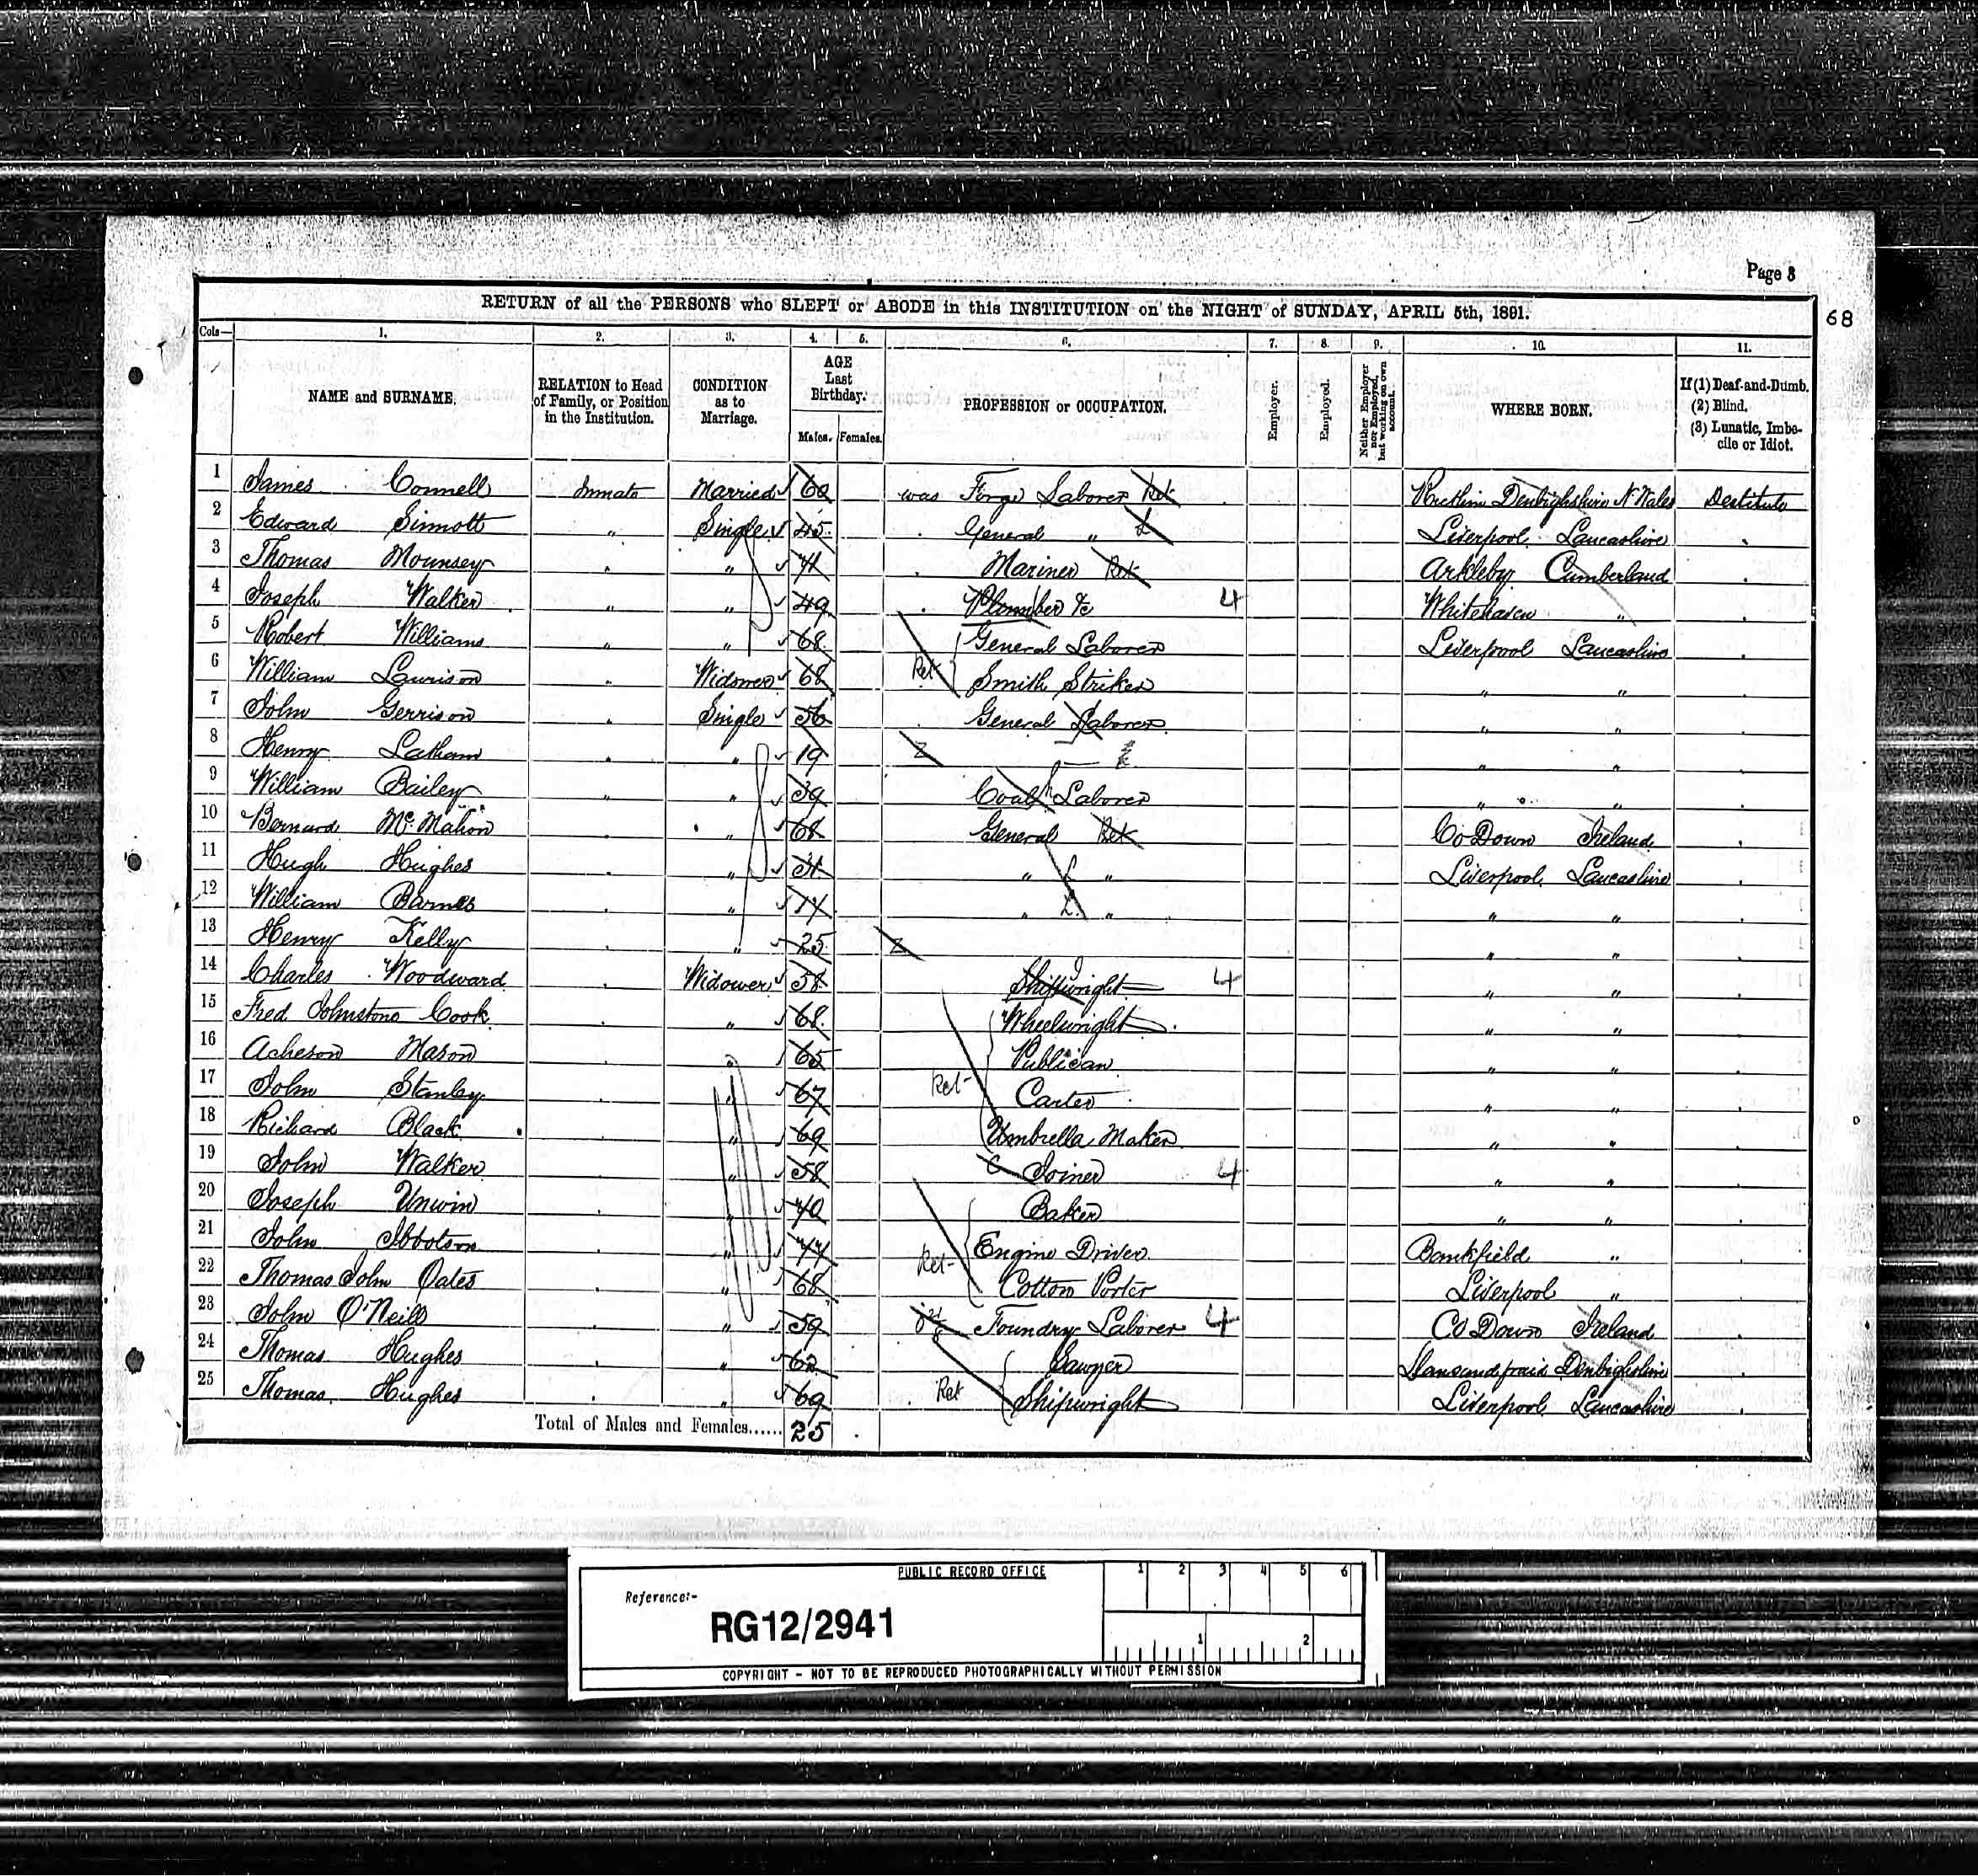 Page 3
68
RETURN of all the PERSONS who SLEPT or ABODE in this INSTITUTION on the NIGHT of SUNDAY, APRIL 5th, 1891.
Cols— 1. 2. 3. 4. 5. 6. 7. 8. 9. 10. 11.
NAME and SURNAME. RELATION to Head of Family, or Position in the Institution. CONDITION as to Marriage. AGE Last Birthday. Males. Females. PROFESSION or OCCUPATION. Employer. Employed. Neither Employer nor Employed, but working on own account. WHERE BORN. If (1) Deaf-and-Dumb. (2) Blind. (3) Lunatic, Imbecile or Idiot.
1 James Connell Inmate Married 60 was Forge Laborer Ret Denbighshire N Wales Destitute
2 Edward Sinnott " Single 45 General " Liverpool Lancashire
3 Thomas Mounsey " " 71 Mariner Ret Arkleby Cumberland
4 Joseph Walker " " 49 Plumber &c 4 Whitehaven "
5 Robert Williams " " 68 General Laborer Liverpool Lancashire
6 William Lawrison " Widower 68 Ret Smith Striker " "
7 John Gerrison " Single 56 General Laborer " "
8 Henry Latham " " 19 — " "
9 William Bailey " " 39 Coal Laborer " "
10 Bernard Mc.Mahon " " 68 General Ret Co Down Ireland
11 Hugh Hughes " " 31 " " Liverpool Lancashire
12 William Barnes " " " " " "
13 Henry Kelly " " 25 " "
14 Charles Woodward " Widower 58 Shipwright 4 " "
15 Fred Johnstone Cook " " 68 Wheelwright " "
16 Acheson Mason " " 65 Publican " "
17 John Stanley " " 67 Ret Carter " "
18 Richard Black " " 69 Umbrella Maker " "
19 John Walker " " 58 Joiner 4 " "
20 Joseph Unwin " " 70 Baker " "
21 John Ibbotson " " 77 Ret Engine Driver Bankfield "
22 Thomas John Oates " " 68 Cotton Porter Liverpool "
23 John O'Neill " " 59 Foundry Laborer 4 Co Down Ireland
24 Thomas Hughes " " 62 Sawyer Denbighshire
25 Thomas Hughes " " 69 Ret Shipwright Liverpool Lancashire
Total of Males and Females...... 25
PUBLIC RECORD OFFICE
1 2 3 4 5 6
Reference:-
RG12/2941
1 2
COPYRIGHT - NOT TO BE REPRODUCED PHOTOGRAPHICALLY WITHOUT PERMISSION